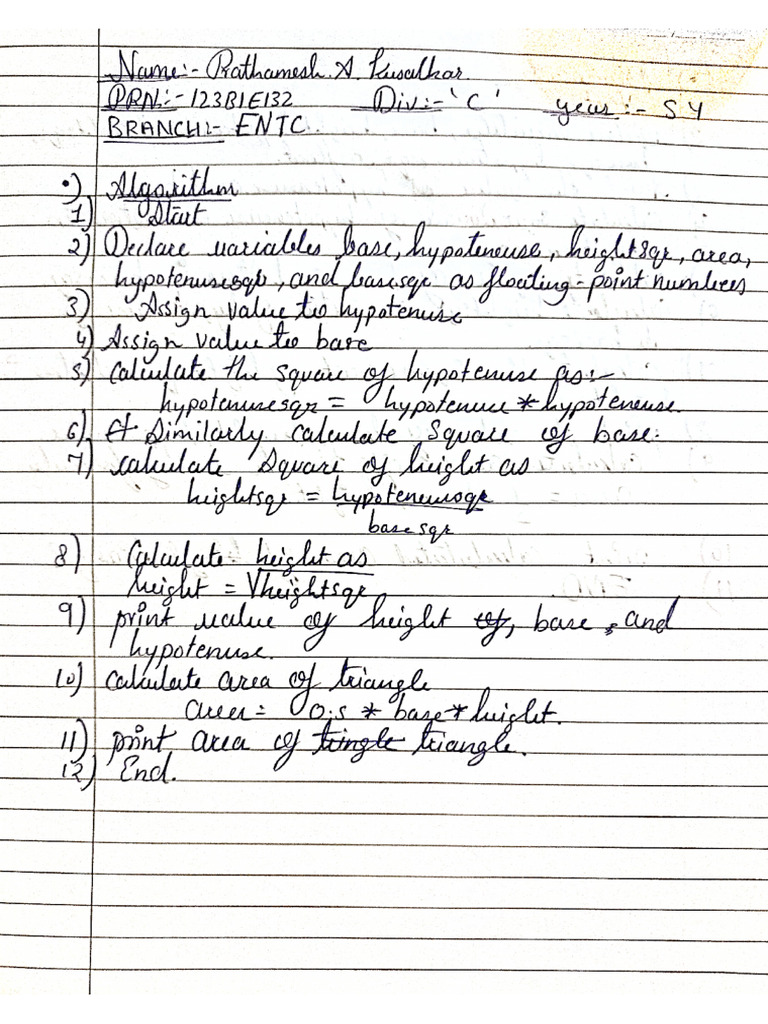 Name:- Prathamesh A. Kusalkar
PRN:- 123B1E132 Div:- 'C' year:- SY
BRANCH:- ENTC
•) Algorithm
1) Start
2) Declare variables base, hypoteneuse, heightsqr, area,
hypotenusesqr, and basesqr as floating-point numbers
3) Assign value to hypotenuse
4) Assign value to base
5) Calculate the square of hypotenuse as:-
hypotenusesqr = hypotenuse * hypoteneuse.
6) Similarly calculate square of base.
7) calculate square of height as
heightsqr = hypoteneusesqr
basesqr
8) Calculate height as
height = √heightsqr
9) print value of height of, base, and
hypotenuse.
10) calculate area of triangle
area = 0.5 * base * height.
11) print area of tringle triangle.
12) End.